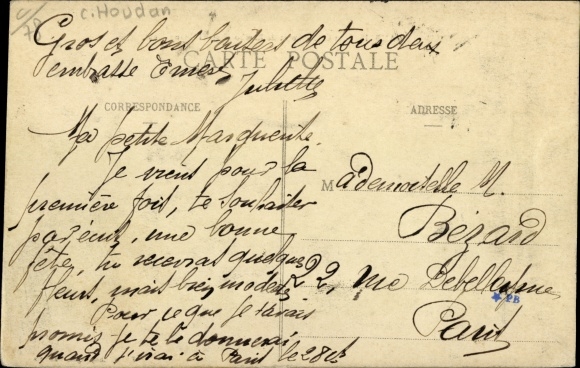 c. Houdan
Gros et bons baisers de tous deux
embrasse Ernest
Juliette
CARTE POSTALE
CORRESPONDANCE
ADRESSE
Ma petite Marguerite,
Je vient pour la
première fois, te souhaiter
par ecrit, une bonne
fête, tu recevras quelques
fleurs, mais bien modeste
Pour ce que je t'avais
promis je te le donnerai
quand j'irai à Paris le 28 ct
Mademoiselle M.
Bézard
22, rue Debelleyme
Paris
PB